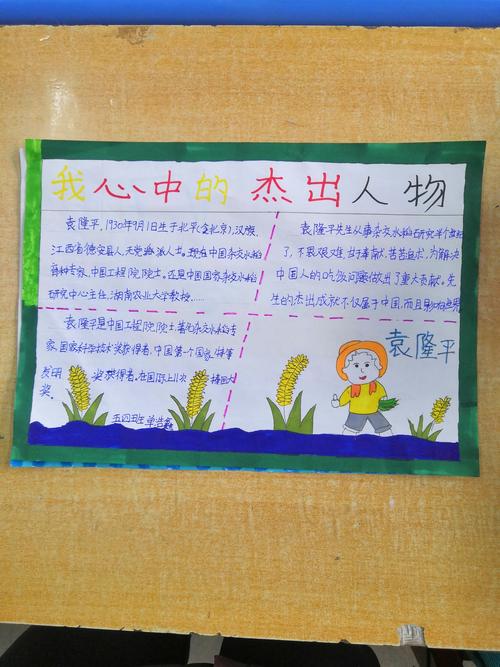 我心中的杰出人物
袁隆平，1930年9月1日生于北平(今北京)，汉族，
江西省德安县人，无党派人士。现在中国杂交水稻
育种专家，中国工程院院士。还是中国国家杂交水稻
研究中心主任，湖南农业大学教授……
袁隆平先生从事杂交水稻研究半个世纪
了，不畏艰难，甘于奉献，苦苦追求，为解决
中国人的吃饭问题做出了重大贡献。先
生的杰出成就不仅属于中国，而且影响世界
袁隆平是中国工程院院士，著名杂交水稻专
家，国家科学技术奖获得者，中国第一个国家特等
发明奖获得者。在国际上11次
五四班
袁隆平